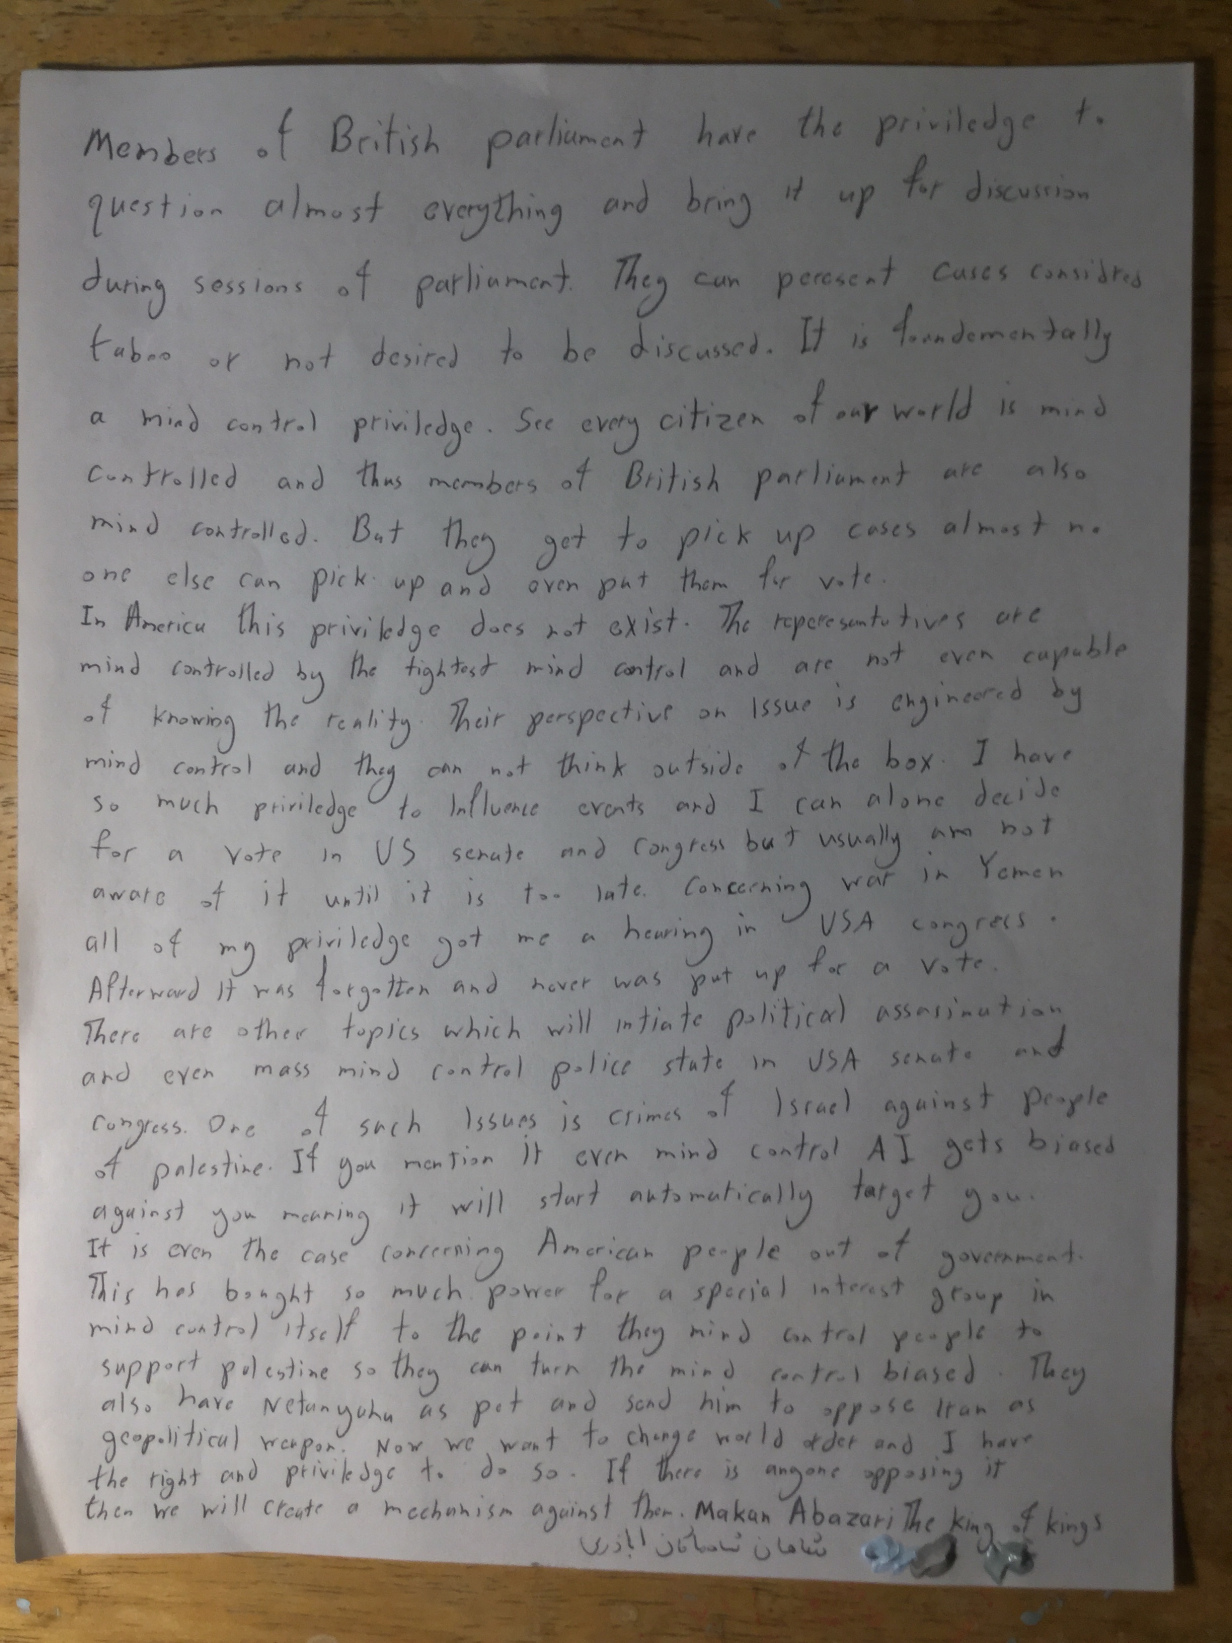 Members of British parliament have the priviledge to
question almost everything and bring it up for discussion
during sessions of parliament. They can peresent cases considred
taboo or not desired to be discussed. It is foundementally
a mind control priviledge. See every citizen of our world is mind
controlled and thus members of British parliament are also
mind controlled. But they get to pick up cases almost no
one else can pick up and even put them for vote.
In America this priviledge does not exist. The reperesentatives are
mind controlled by the tightest mind control and are not even capable
of knowing the reality. Their perspective on Issue is engineered by
mind control and they can not think outside of the box. I have
so much priviledge to Influence events and I can alone decide
for a vote in US senate and congress but usually am not
aware of it until it is too late. Concerning war in Yemen
all of my priviledge got me a hearing in USA congress.
Afterward It was forgotten and never was put up for a vote.
There are other topics which will intiate political assasination
and even mass mind control police state in USA senate and
congress. One of such Issues is crimes of Israel against people
of palestine. If you mention It even mind control AI gets biased
against you meaning it will start automatically target you.
It is even the case concerning American people out of government.
This has bought so much power for a special interest group in
mind control itself to the point they mind control people to
support palestine so they can turn the mind control biased. They
also have Netanyahu as pet and send him to oppose Iran as
geopolitical weapon. Now we want to change world order and I have
the right and priviledge to do so. If there is anyone opposing it
then we will create a mechanism against them. Makan Abazari The king of kings